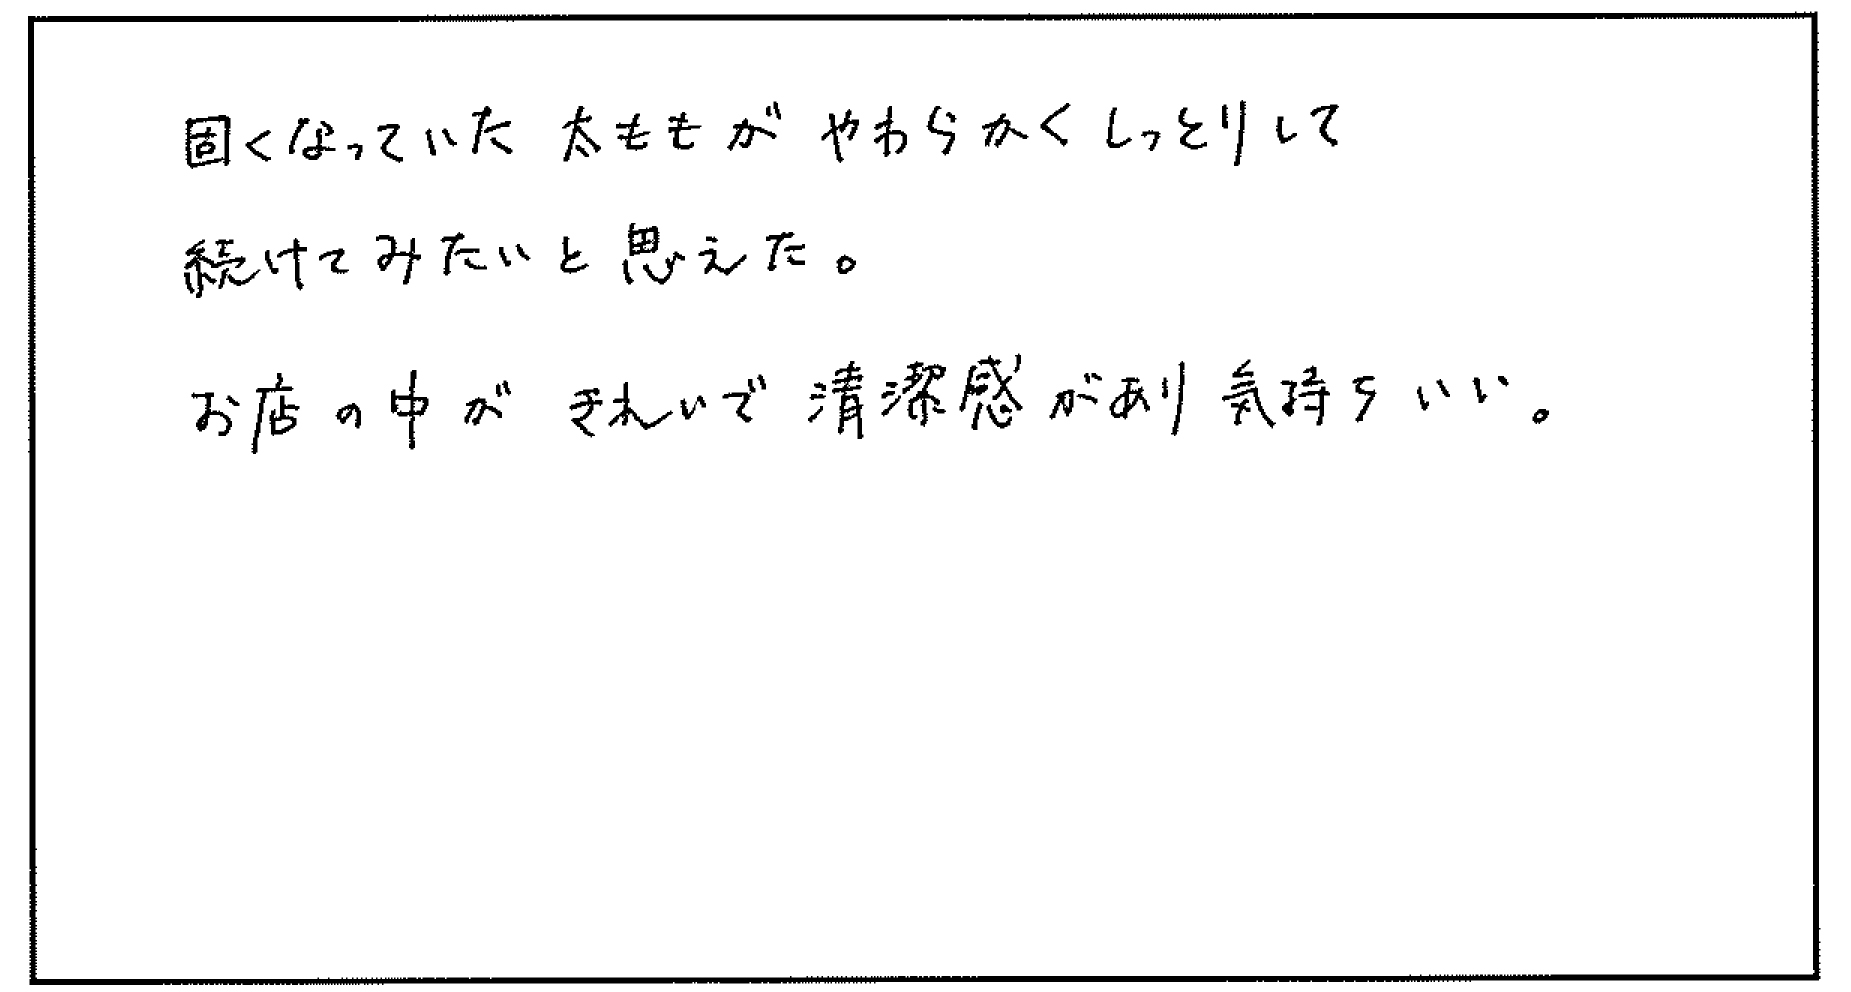 固くなっていた太ももがやわらかくしっとりして
続けてみたいと思えた。
お店の中がきれいで清潔感があり気持ちいい。